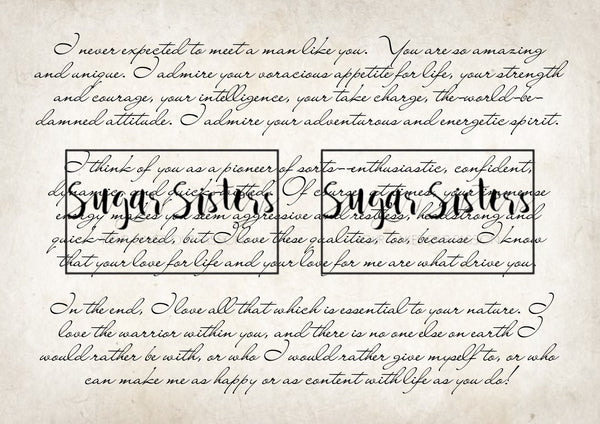 I never expected to meet a man like you. You are so amazing
and unique. I admire your voracious appetite for life, your strength
and courage, your intelligence, your take charge, the-world-be-
damned attitude. I admire your adventurous and energetic spirit.
I think of you as a pioneer of sorts--enthusiastic, confident,
dynamic, and quick-witted. Of course, at times, your immense
energy makes you seem aggressive and restless, headstrong and
quick-tempered, but I love these qualities, too, because I know
that your love for life and your love for me are what drive you.
Sugar Sisters Sugar Sisters
In the end, I love all that which is essential to your nature. I
love the warrior within you, and there is no one else on earth I
would rather be with, or who I would rather give myself to, or who
can make me as happy or as content with life as you do!